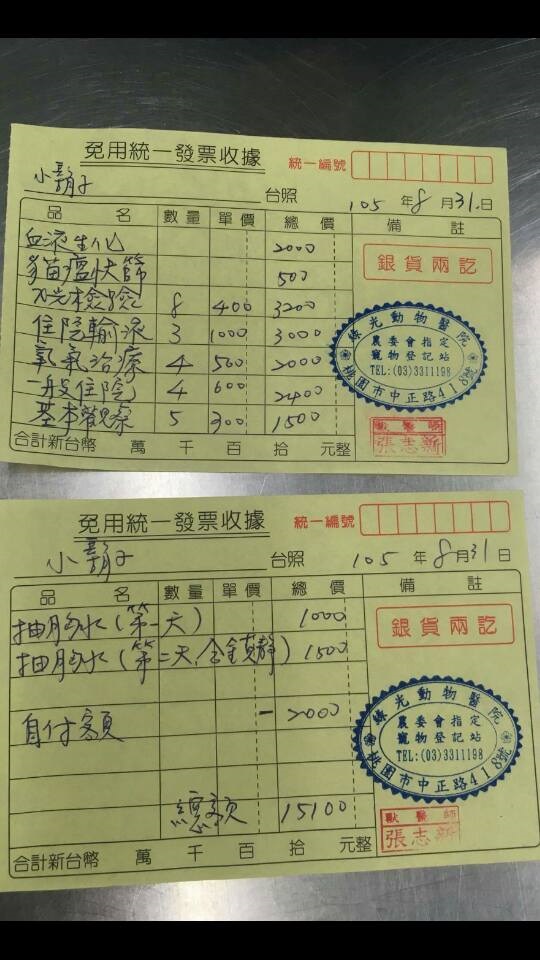 免用統一發票收據
統一編號
小霸子 台照 105 年 8 月 31 日
品 名 數量 單價 總價 備註
血液生化 2000
貓瘟快篩 500
X光檢驗 8 400 3200
住院輸液 3 1000 3000
氧氣治療 4 500 2000
一般住院 4 600 2400
基本觀察 5 300 1500
合計新台幣 萬 千 百 拾 元整
銀貨兩訖
綠光動物醫院
農委會指定
寵物登記站
TEL:(03)3311198
桃園市中正路418號
獸醫師
張志新
免用統一發票收據
統一編號
小霸子 台照 105 年 8 月 31 日
品 名 數量 單價 總價 備註
抽胸水(第一天) 1000
抽胸水(第二天,含鎮靜) 1500
自付額 -2000
總額 15100
合計新台幣 萬 千 百 拾 元整
銀貨兩訖
綠光動物醫院
農委會指定
寵物登記站
TEL:(03)3311198
桃園市中正路418號
獸醫師
張志新